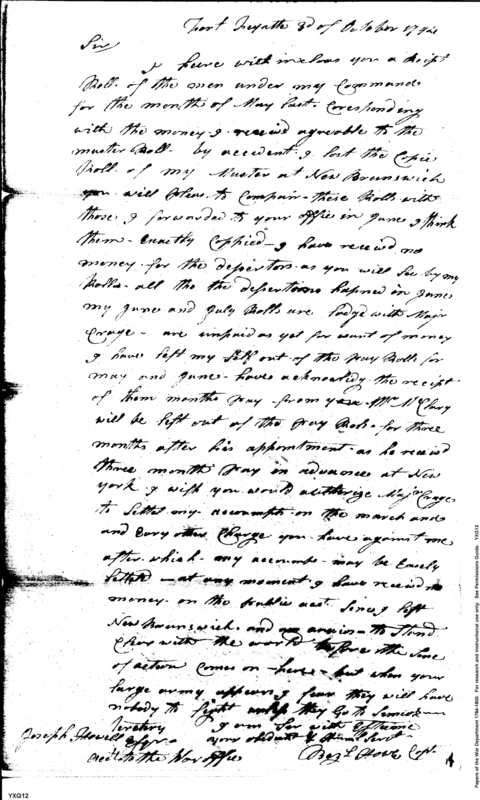 Fort Feyatte 3d of October 1794
Sir
I heere with inclous you a Recipt
Roll of the men under my Command
for the month of May Last Coresponding
with the money I receivd agreable to the
muster Roll by accedent I lost the Copie
Roll of my Muster at New Brunswich
you will Pleas to Compair these Rolls with
those I forwarded to your office in June I think
them Exacthy Coppied I have receivd no
money for the desertors as you will See by my
Rolls all tho the desertions hapned in June
my June and July Rolls are lodge with Major
Crage are unpaid as yet for want of money
I have left my Self out of the Pay Rolls for
may and June have acknowlidg the receipt
of them months Pay from you Mr McClary
will be left out of the Pay Rols for three
months after his appointment as he receivd
three month Pay in advance at New
york I wish you would authorize Major Crage
to Settel my accoumpts on the march and
and Evry other Charge you have against me
after which my accounts may be Easely
Settled at any moment I have receivd no
money on the publick act Since I left
New Brunswich and am anxious to Stand
Clear with the world before the Sene
of action Comes on here but when your
large army appears I fear they will have
nobody to fight unless they Go to
I am Sir with Esteem
your obediant & Humbl Servt
Joseph Howell Esqr
acct to the War Office
Benj Howe Capt
YXG12
Papers of the War Department 1784-1800. For research and instructional use only. See Permissions Guide. YXG12